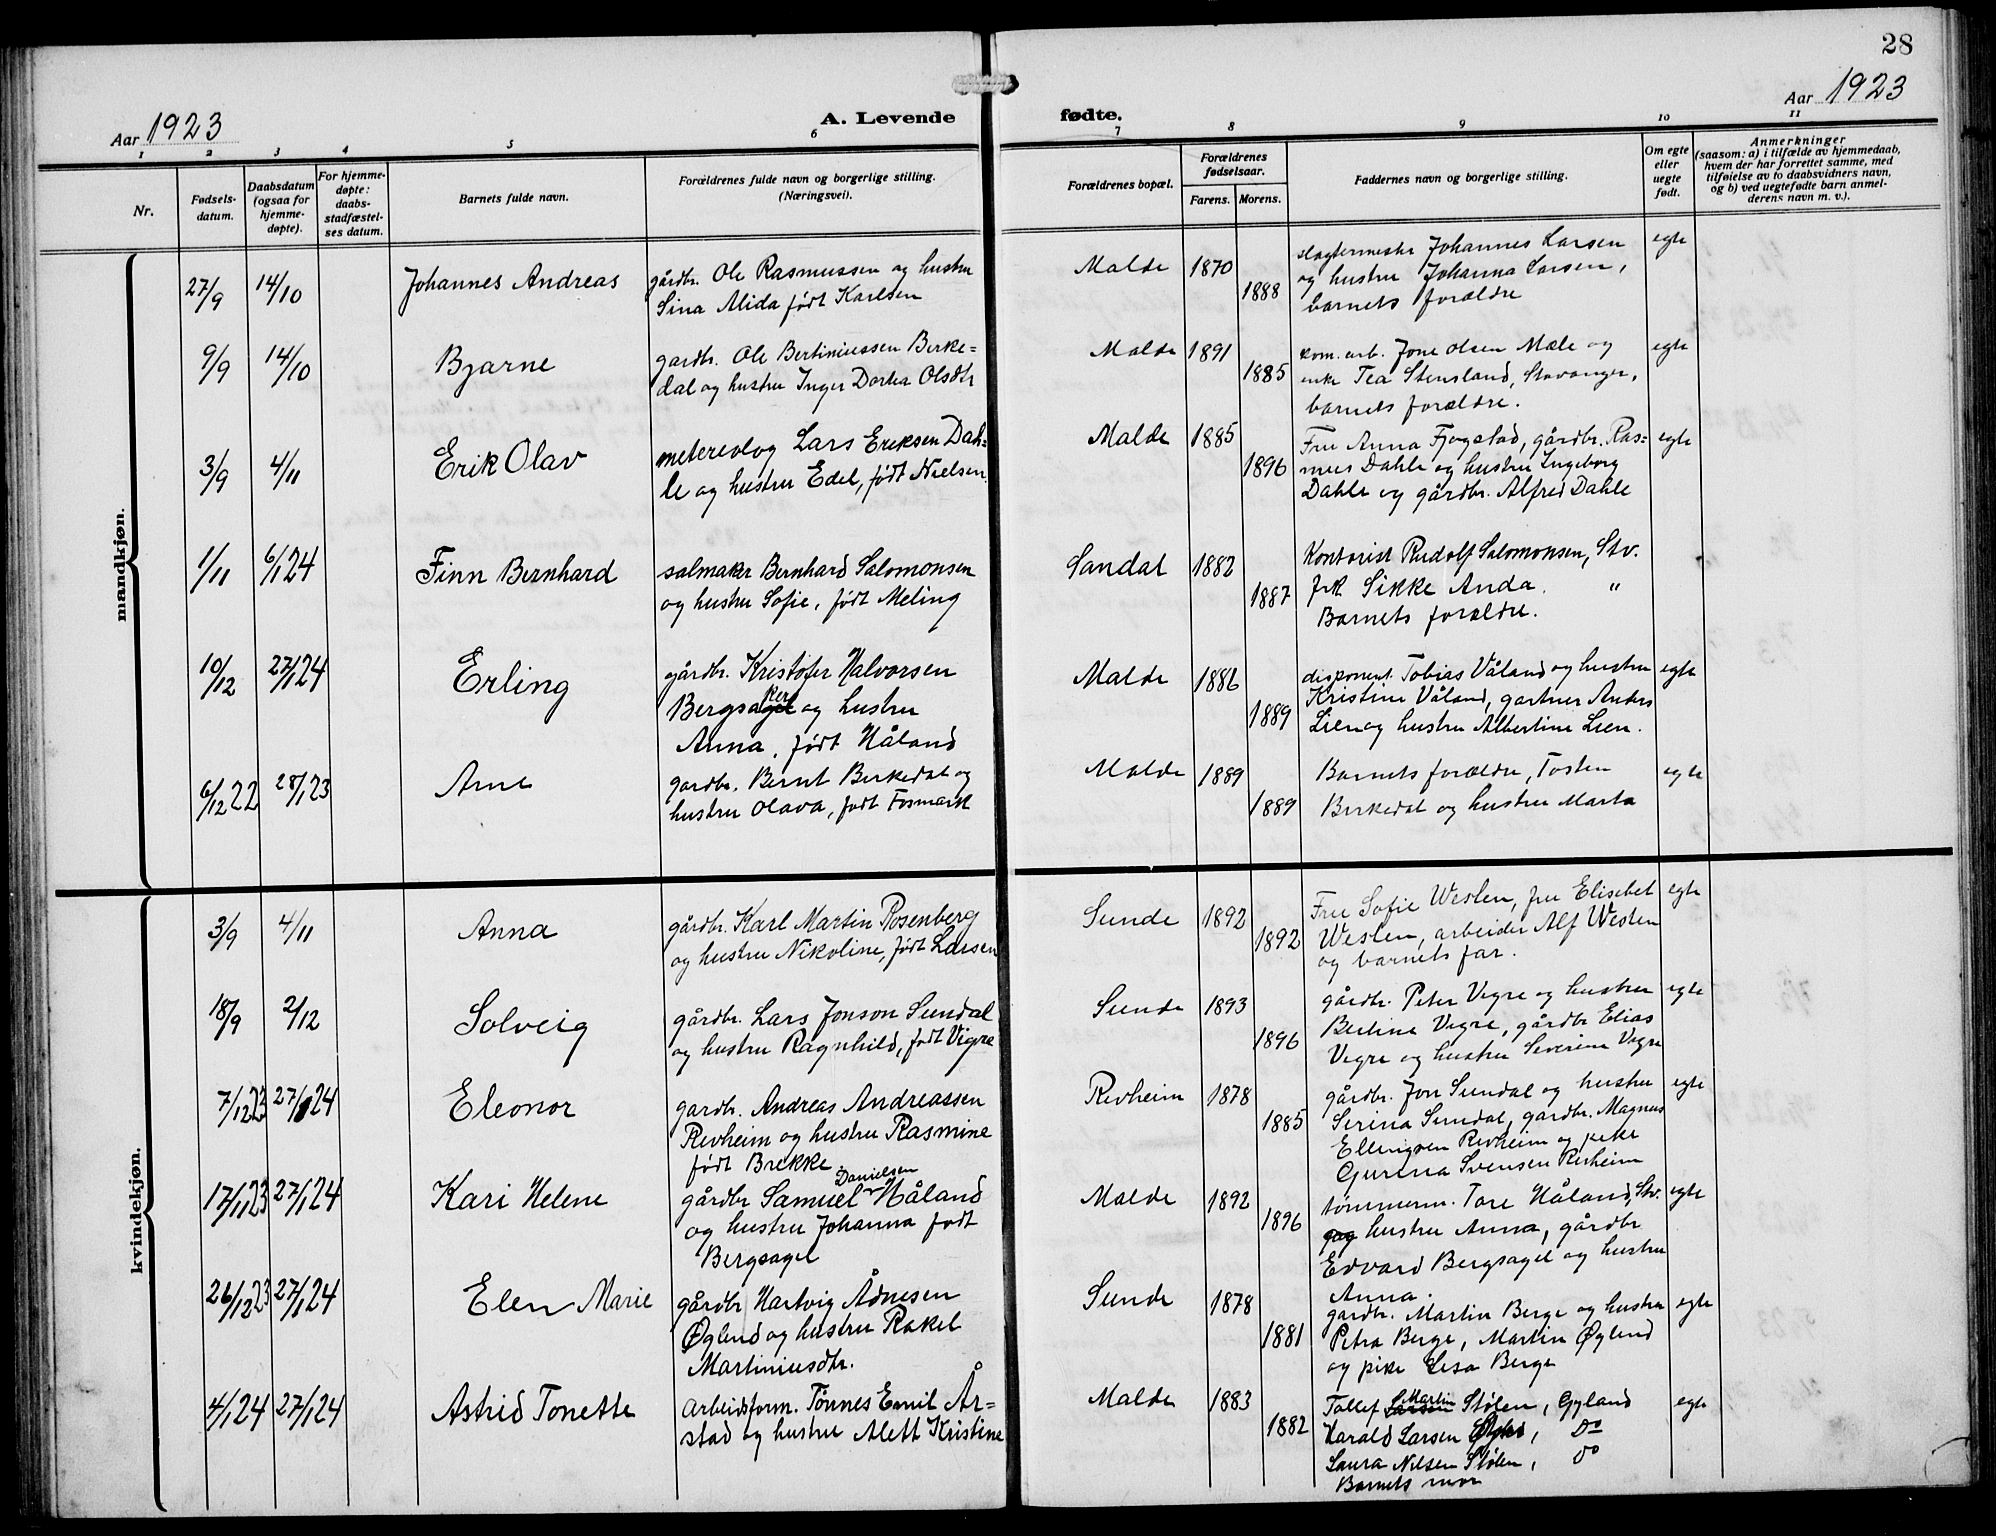 28
Aar 1923
A. Levende fødte.
Aar 1923
1 2 3 4 5 6 7 8 9 10 11
Nr.
Fødsels-
datum.
Daabsdatum
(ogsaa for
hjemme-
døpte).
For hjemme-
døpte:
daabs-
stadfæstel-
ses datum.
Barnets fulde navn.
Forældrenes fulde navn og borgerlige stilling.
(Næringsvei).
Forældrenes bopæl.
Forældrenes
fødselsaar.
Farens. Morens.
Faddernes navn og borgerlige stilling.
Om egte
eller
uegte
født.
Anmerkninger
(saasom: a) i tilfælde av hjemmedaab,
hvem der har forrettet samme, med
tilføielse av to daabsvidners navn,
og b) ved uegtefødte barn anmel-
derens navn m. v.).
mandkjøn.
27/9 14/10 Johannes Andreas
gårdbr. Ole Rasmussen og hustru
Sina Alida født Karlsen
Malde 1870 1888
slagtermester Johannes Larsen
og hustru Johanna Larsen,
barnets forældre
egte
9/9 14/10 Bjarne
gardbr. Ole Bertiniussen Birke=
dal og hustru Inger Dortea Olsdtr
Malde 1891 1885
kom. arb. Jone Olsen Mæle og
enke Tea Stensland, Stavanger,
barnets forældre.
egte
3/9 4/11 Erik Olav
metereolog Lars Eriksen Dah=
le og hustru Edel, født Nielsen.
Malde 1885 1896
Fru Anna Fjogstad, gårdbr. Ras=
mus Dahle og hustru Ingeborg
Dahle og gårdbr. Alfred Dahle
egte
1/11 6/1 24 Finn Bernhard
salmaker Bernhard Salomonsen
og hustru Sofie, født Meling
Sandal 1882 1887
Kontorist Rudolf Salomonsen, Stv.
frk Sikke Anda. "
Barnets forældre.
10/12 27/1 24 Erling
gårdbr. Kristofer Halvorsen
Bergsagel og hustru
Anna, født Håland
Malde 1886 1889
disponent Tobias Våland og hustru
Kristine Våland, gartner Anders
Lien og hustru Albertine Lien.
egte
6/12 22 28/1 23 Arne
gardbr. Bernt Birkedal og
hustru Olava, født Fosmark
Malde 1889 1889
Barnets forældre, Tosten
Birkedal og hustru Marta
egte
kvindekjøn.
3/9 4/11 Anna
gårdbr. Karl Martin Rosenberg
og hustru Nikoline, født Larsen
Sunde 1892 1892
Fru Sofie Westen, fru Elisebet
Westen, arbeider Alf Westen
og barnets far.
egte
18/9 2/12 Solveig
gårdbr. Lars Jonson Sundal
og hustru Ragnhild, født Vigre
Sunde 1893 1896
gårdbr. Peter Vigre og hustru
Bertine Vigre, gårdbr Elias
Vigre og hustru Severine Vigre
egte
7/12 23 27/1 24 Eleonor
gardbr. Andreas Andreassen
Revheim og hustru Rasmine
født Brekke.
Revheim 1878 1885
gårdbr. Jon Sundal og hustru
Serina Sundal, gardbr. Magnus
Ellingsen Revheim og pike
Gurina Svensen Revheim
egte
17/11 23 27/1 24 Kari Helene
gårdbr Samuel Danielsen Håland
og hustru Johanna født
Bergsagel
Malde 1892 1896
tømmerm. Tore Håland, Stv.
og hustru Anna, gårdbr
Edvard Bergsagel og hustru
Anna.
egte
26/12 23 27/1 24 Elen Marie
gårdbr Hartvig Ådnesen
Øglend og hustru Rakel
Martiniusdtr.
Sunde 1878 1881
gardbr. Martin Berge og hustru
Petra Berge, Martin Øglend
og pike Lisa Berge
egte
4/1 24 27/1 24 Astrid Tonette
Arbeidsform. Tønnes Emil År=
stad og hustru Alett Kristine
Malde 1883 1882
Tollef Martin Stølen, Gyland
Harald Larsen , Do
Laura Nilsen Stølen, Do
Barnets mor
egte